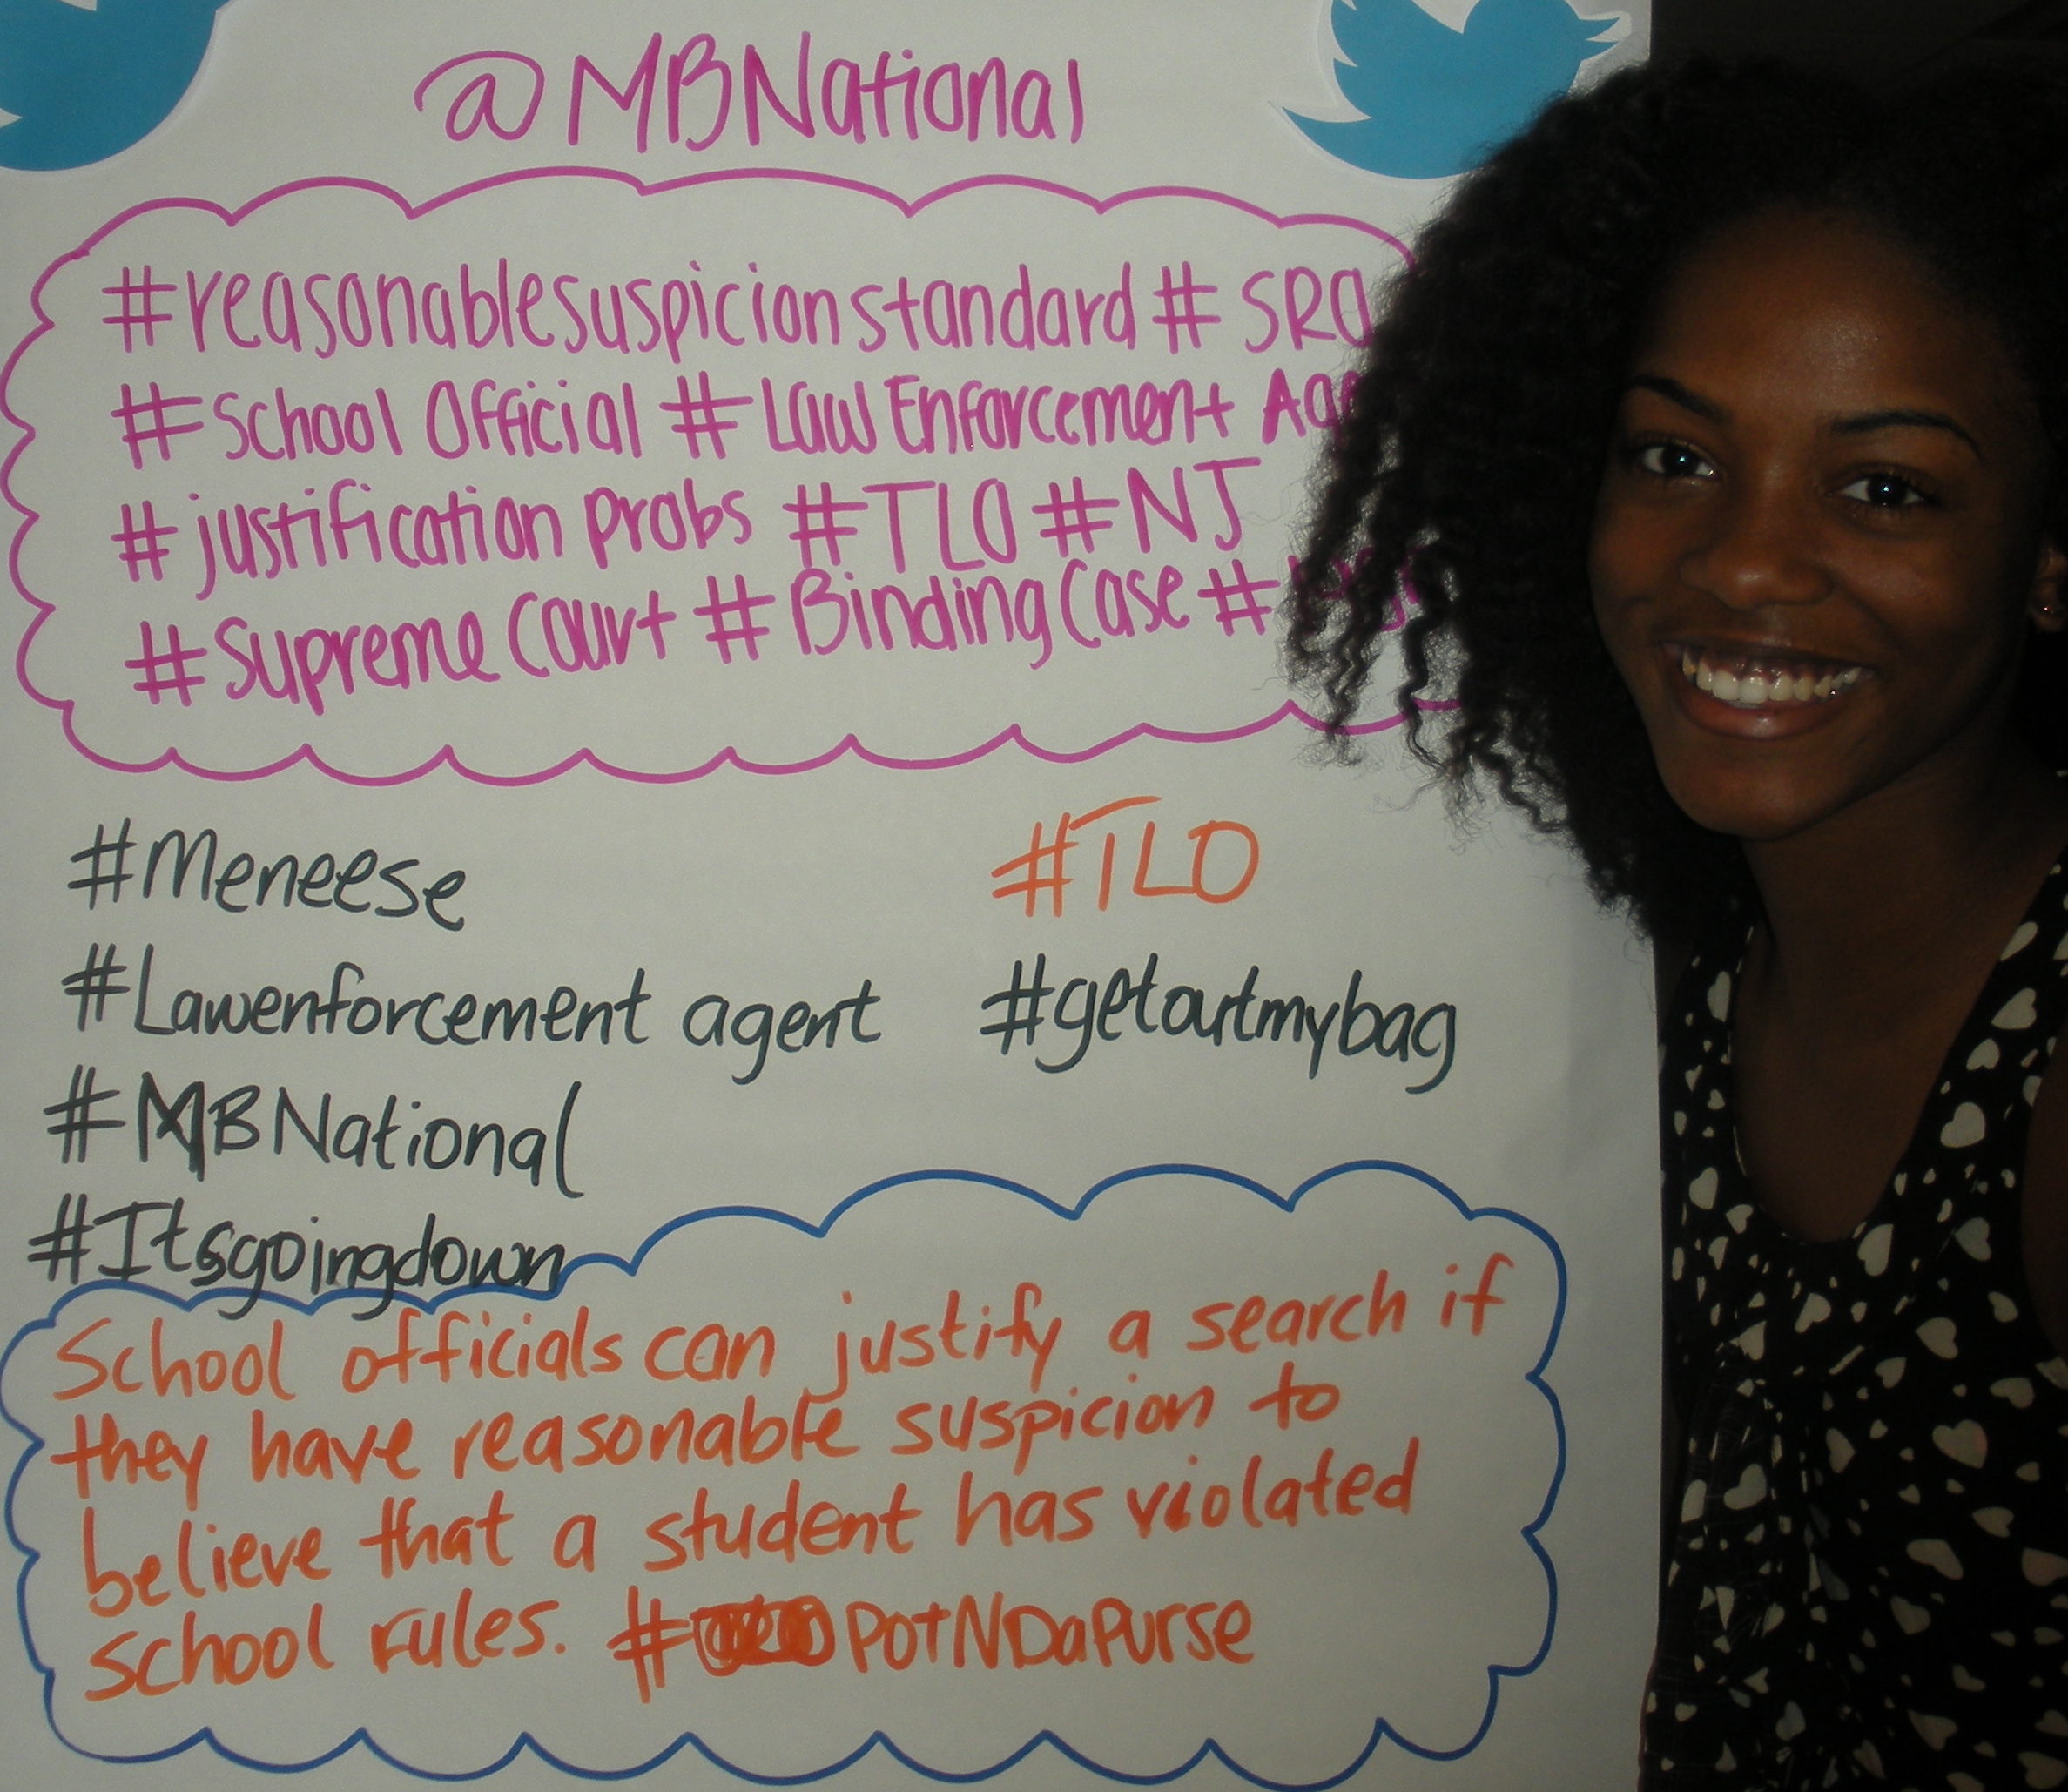 @MBNational
#reasonablesuspicionstandard # SRO
#School Official #Law Enforcement
#justification probs #TLO #NJ
#Supreme Court #BindingCase #
#Meneese
#TLO
#Lawenforcement agent
#getoutmybag
#MBNational
#Itsgoingdown
School officials can justify a search if
they have reasonable suspicion to
believe that a student has violated
school rules. # PotNDaPurse